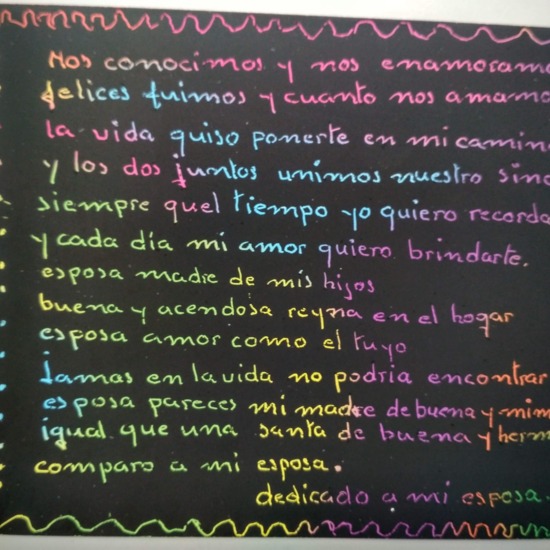 Nos conocimos y nos enamoramo
felices fuimos y cuanto nos amamo
la vida quiso ponerte en mi camin
y los dos juntos unimos nuestro sinc
siempre quel tiempo yo quiero recorda
y cada día mi amor quiero brindarte.
esposa madre de mis hijos
buena y acendosa reyna en el hogar
esposa amor como el tuyo
Jamas en la vida no podria encontrar
esposa pareces mi madre de buena y mim
igual que una santa de buena y herm
comparo a mi esposa.
dedicado a mi esposa.